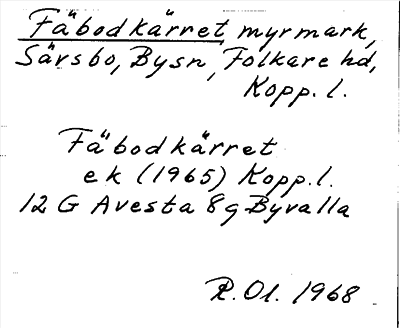 Fäbodkärret, myrmark,
Särsbo, Bysn, Folkare hd,
Kopp. l.
Fäbodkärret
ek (1965) Kopp. l.
12 G Avesta 8g Byvalla
R. Ol. 1968